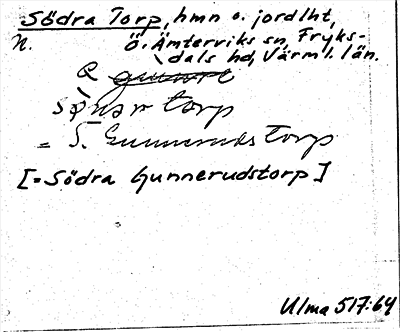 Södra Torp, hmn o. jordlht,
N. Ö. Ämterviks sn, Fryks-
dals hd, Värml. län.
torp
= S. Gunneruds Torp
[= Södra Gunnerudstorp]
Ulma 517:64